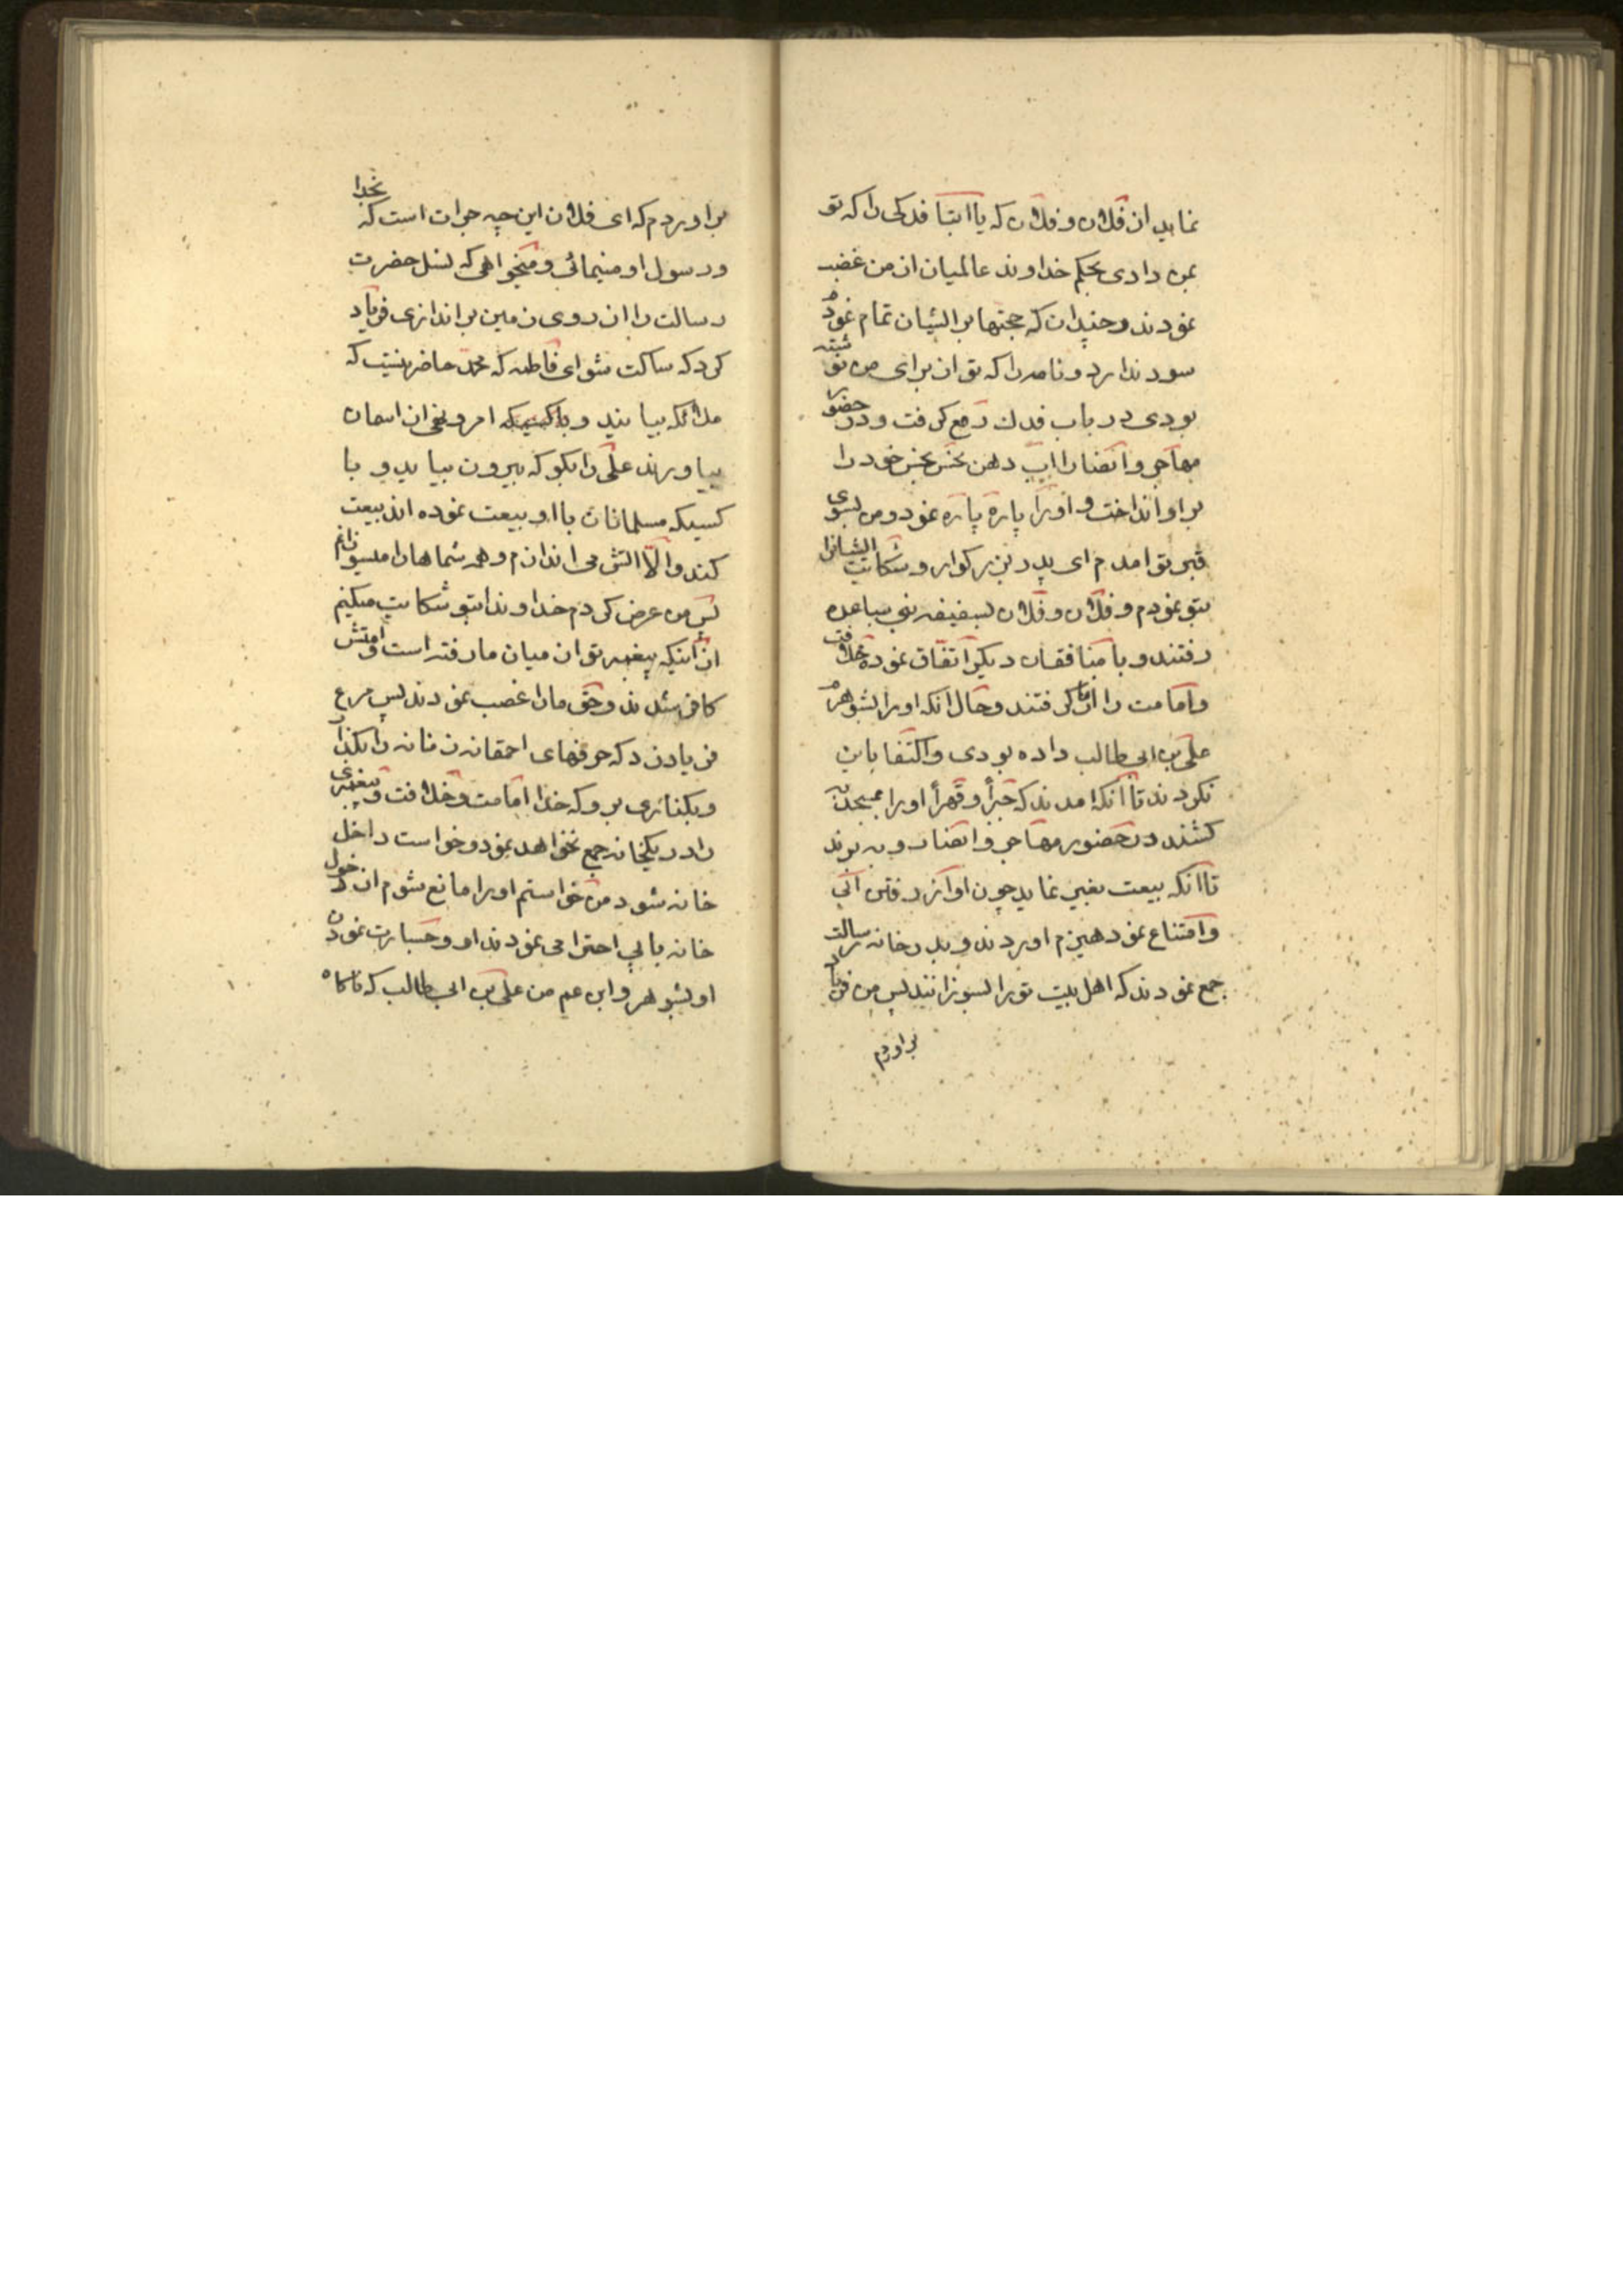 نماید از فلان و فلان که یا ابتا فدکی را که تو
بمن دادی بحکم خداوند عالمیان از من غضب
نمودند و چندان که حجتها بر ایشان تمام نمودم
سود ندارد و نامه را که تو از برای من نوشته
بودی در باب فدک رفع گرفت و در حضور
مهاجر و انصار اب دهن نجس نجس خود را
بر او انداخت و او را پاره پاره نمود و من بسوی
قبر تو امدم ای پدر بزرکوار و شکایت ایشانرا
بتو نمودم و فلان و فلان بسقیفه بنی ساعده
رفتند و با منافقان دیکر اتفاق نموده خلافت
و امامت را از ما کرفتند و حال انکه او را بشوهرم
علی بن ابی طالب داده بودی و اکتفا باین
نکردند تا انکه امدند که جبرأ و قهرأ او را بمسجد
کشند در حضور مهاجر و انصار و برند
تا انکه بیعت بغیی نماید چون او از رفتن ابی
و امتناع نمود هیزم اوردند و بدر خانه رسالت
جمع نمودند که اهل بیت تو را بسوزانند پس من فریاد
براوردم
براوردم که ای فلان این چه جرات است که بخدا
و رسول او مینمائی و میخواهی که نسل حضرت
رسالت را از روی زمین براندازی فریاد
کرد که ساکت شو ای فاطمه که محمد حاضر نیست که
ملائکه بیایند و امر و نهی از اسمان
بیاورند علی را بکو که بیرون بیاید و با
کسیکه مسلمانان با او بیعت نموده اند بیعت
کند و الا اتش می اندازم و همه شماها را میسوزانم
پس من عرض کردم خداوندا بتو شکایت میکنم
از اینکه پیغمبر تو از میان ما رفته است و امتش
کافر شدند و حق ما را غصب نمودند پس مرع
فریاد زد که حرفهای احمقانه زنانه را بکذار
و بکناری برو که خدا امامت و خلافت و پیغمبری
را در یکخانه جمع نخواهد نمود و خواست داخل
خانه شود من خواستم او را مانع شوم از دخول
خانه با بی احترامی نمودند او و جسارت نمودن
او بشوهر و ابن عم من علی بن ابی طالب که ناکاه